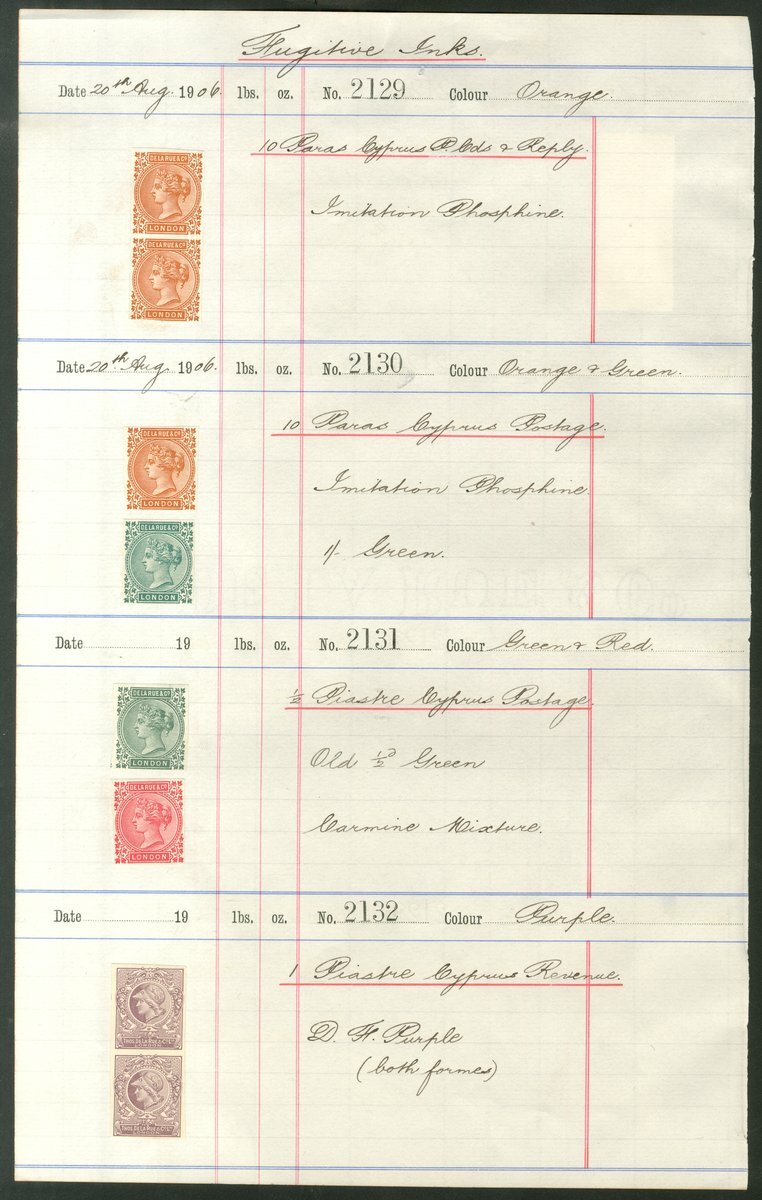 Fugitive Inks.
Date 20th Aug. 1906. lbs. oz. No. 2129 Colour Orange.
10 Paras Cyprus P. Cds & Reply.
Imitation Phosphine.
DE LA RUE & Co
LONDON
DE LA RUE & Co
LONDON
Date 20th Aug. 1906. lbs. oz. No. 2130 Colour Orange & Green.
10 Paras Cyprus Postage.
Imitation Phosphine.
1/- Green.
DE LA RUE & Co
LONDON
DE LA RUE & Co
LONDON
Date 19 lbs. oz. No. 2131 Colour Green & Red.
½ Piastre Cyprus Postage.
Old ½D Green
Carmine Mixture.
DE LA RUE & Co
LONDON
DE LA RUE & Co
LONDON
Date 19 lbs. oz. No. 2132 Colour Purple.
1 Piastre Cyprus Revenue.
D. F. Purple
(both formes)
THOS DE LA RUE & Co
THOS DE LA RUE & Co